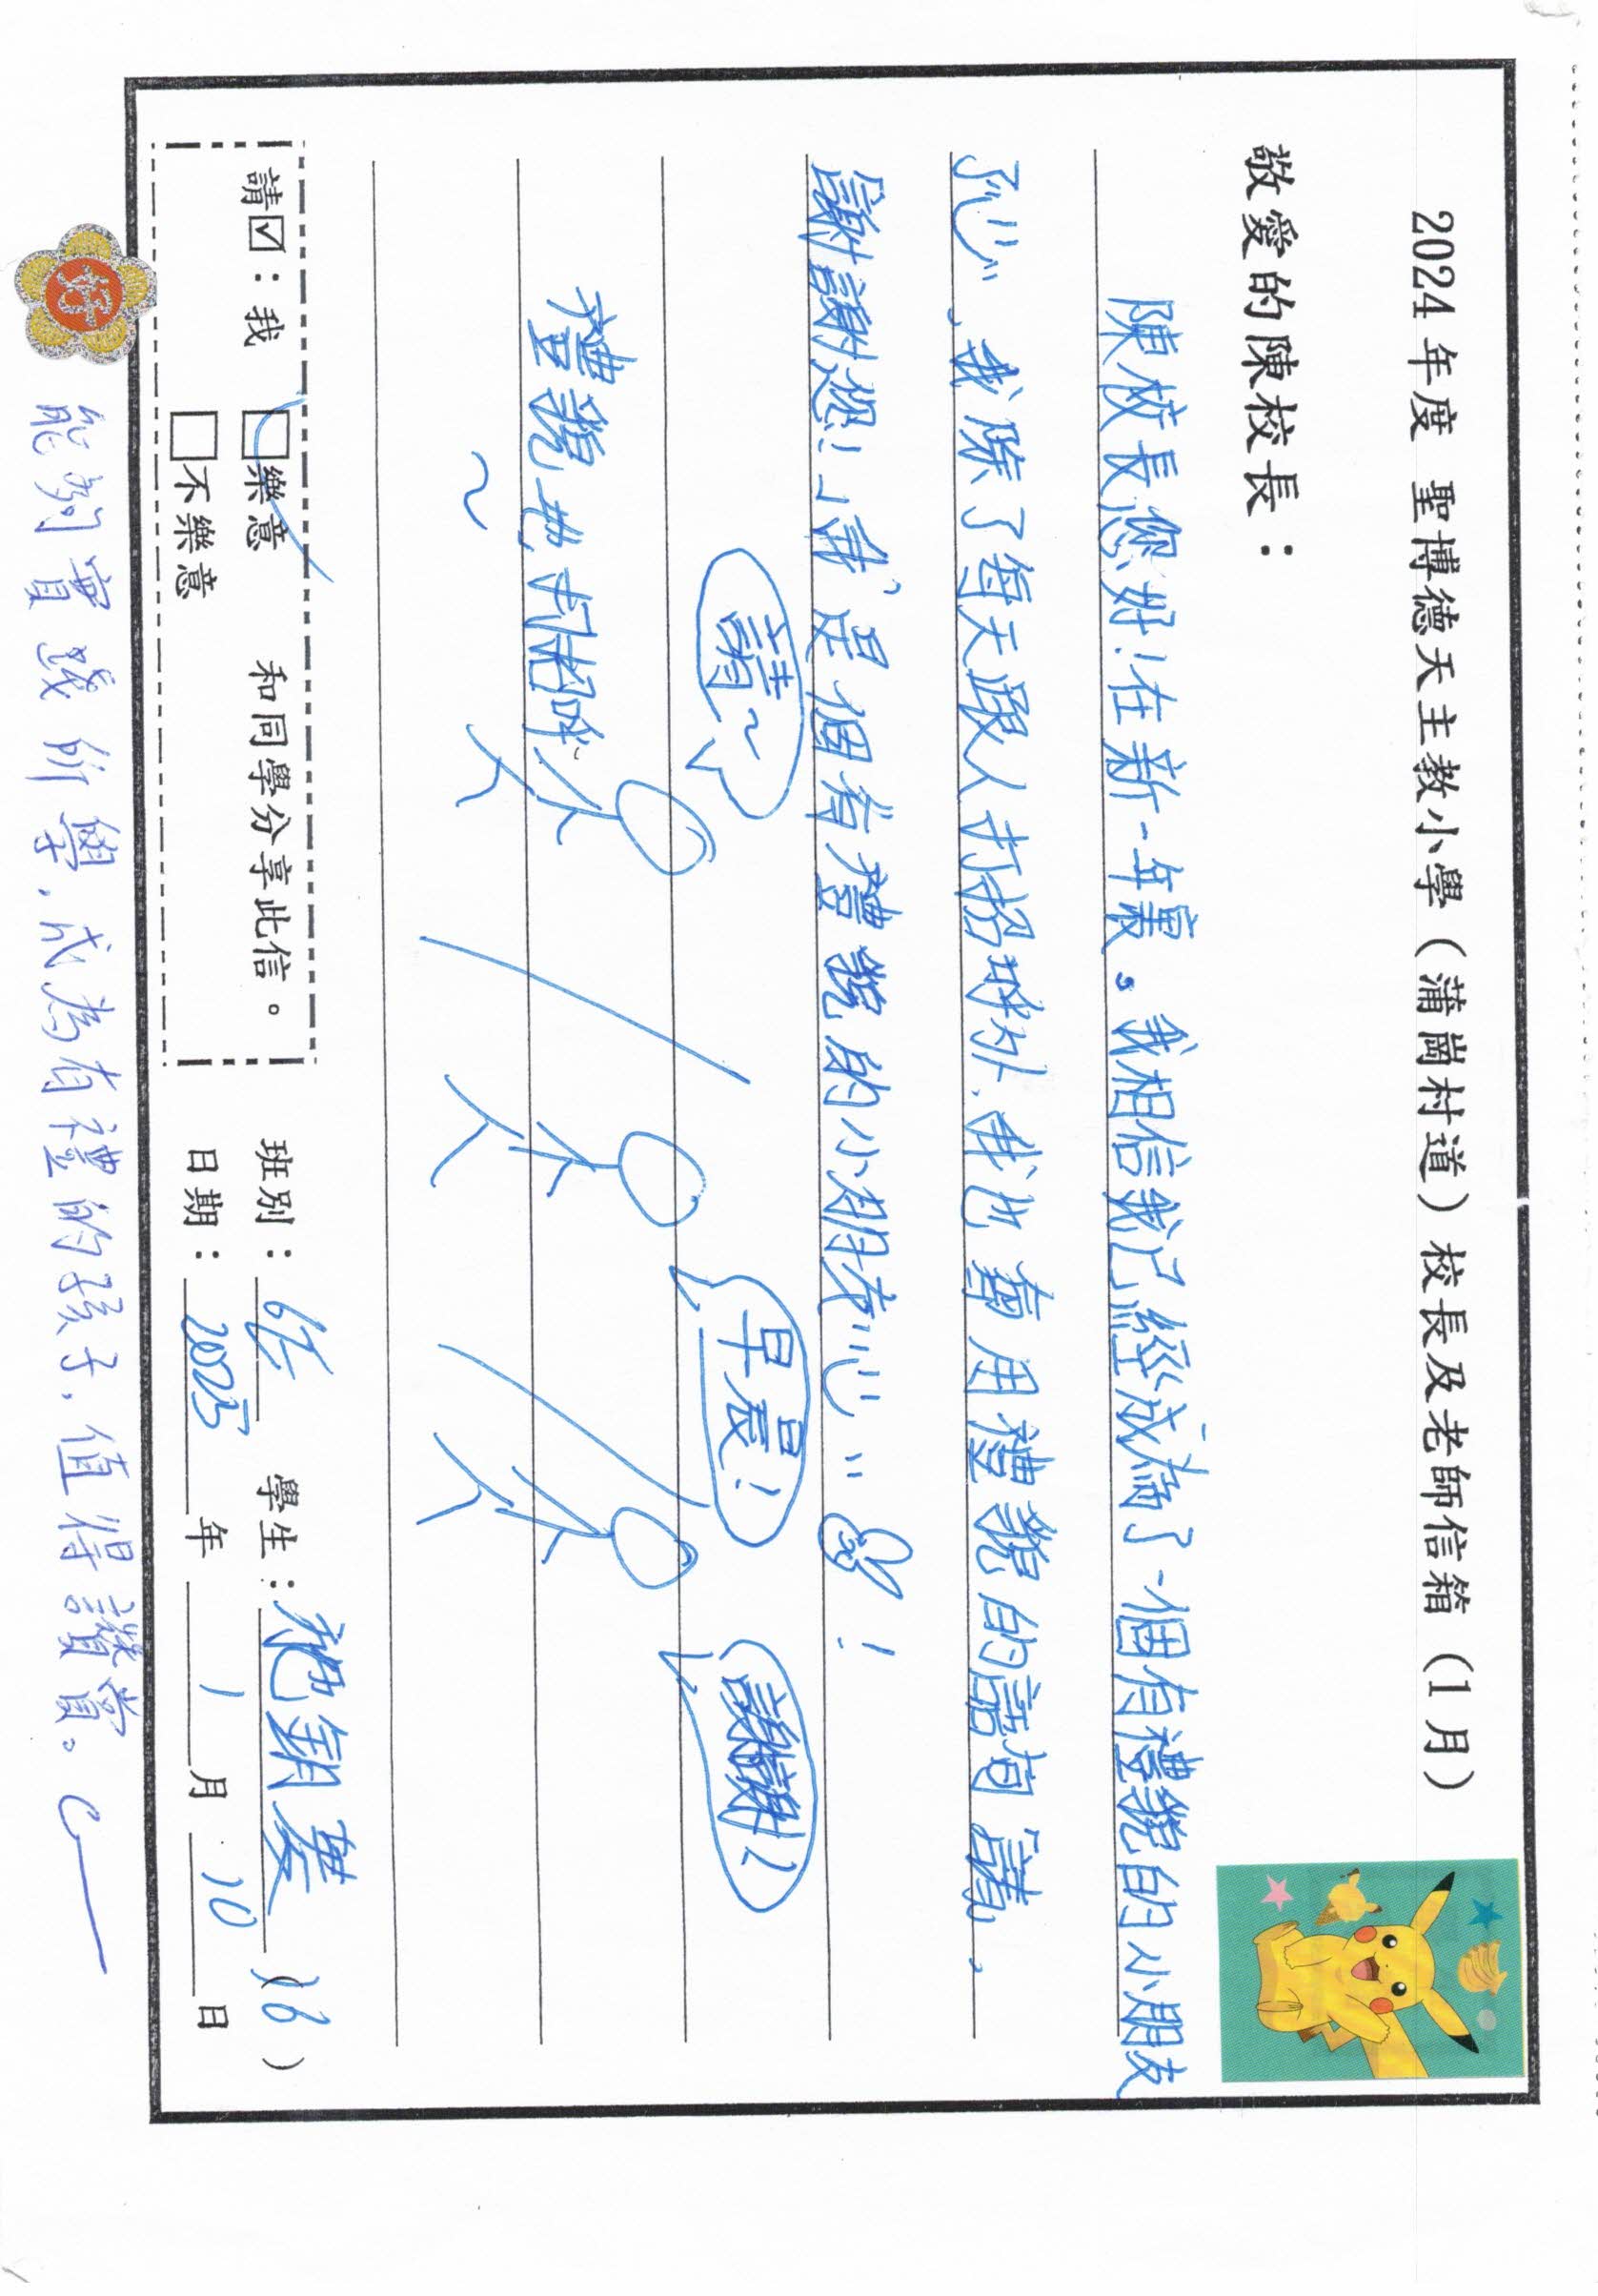 2024 年度 聖博德天主教小學（蒲崗村道）校長及老師信箱（1 月）
敬愛的陳校長：
陳校長您好！在新一年裏。我相信我已經成為了一個有禮貌的小朋友
了心、我除了每天跟人打招呼外、我也會用禮貌的語句「請」、
「謝謝您！」我是個有禮貌的小朋友心！
請～
早晨！
謝謝！
禮貌地打招呼
～
請☑：我 □樂意 和同學分享此信。
□不樂意
班別： 學生： (16)
日期：2025 年 1 月 10 日
好
能夠實踐所學，成為有禮的孩子，值得讚賞。